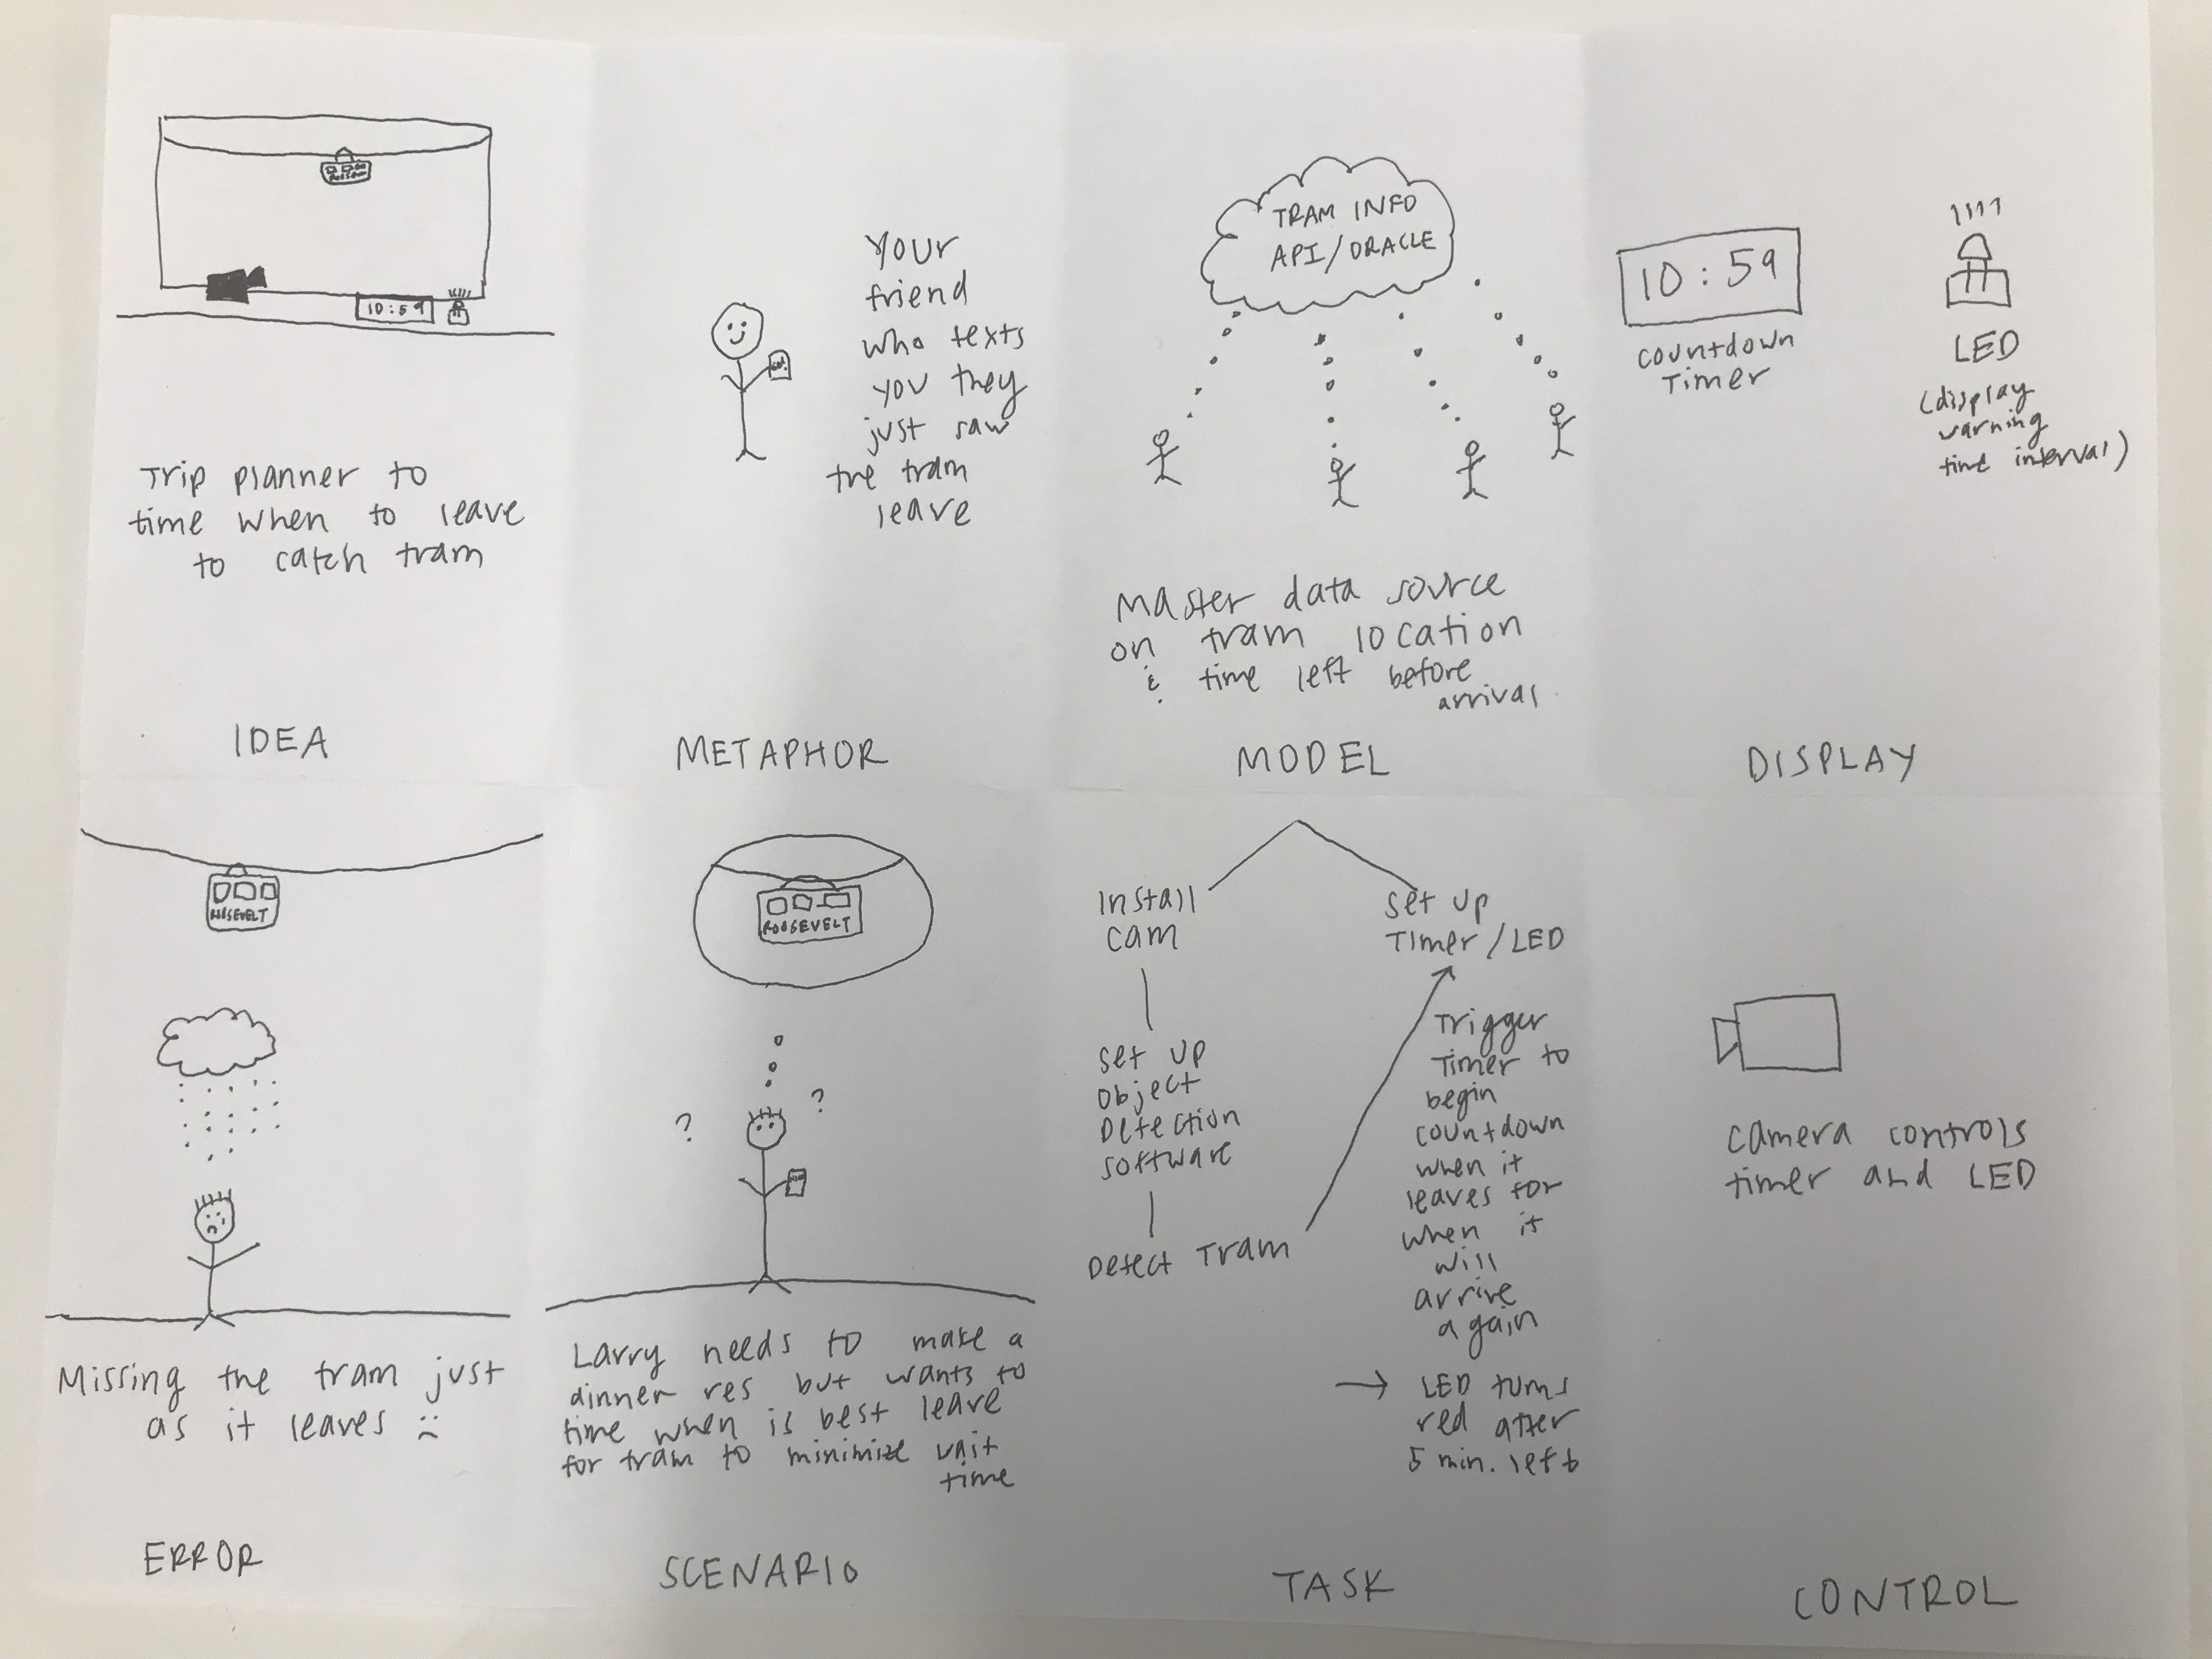 10:59
Trip planner to
time when to leave
to catch tram
IDEA
Your
friend
who texts
you they
just saw
the tram
leave
METAPHOR
TRAM INFO
API/ORACLE
Master data source
on tram location
& time left before
arrival
MODEL
10:59
countdown
Timer
LED
(display
warning
time interval)
DISPLAY
Missing the tram just
as it leaves :(
ERROR
ROOSEVELT
? ?
Larry needs to make a
dinner res but wants to
time when is best leave
for tram to minimize wait
time
SCENARIO
Install
cam
set up
object
Detection
software
Detect Tram
set up
Timer/LED
Trigger
Timer to
begin
countdown
when it
leaves for
when it
will
arrive
again
→ LED turns
red after
5 min. left
TASK
camera controls
timer and LED
CONTROL